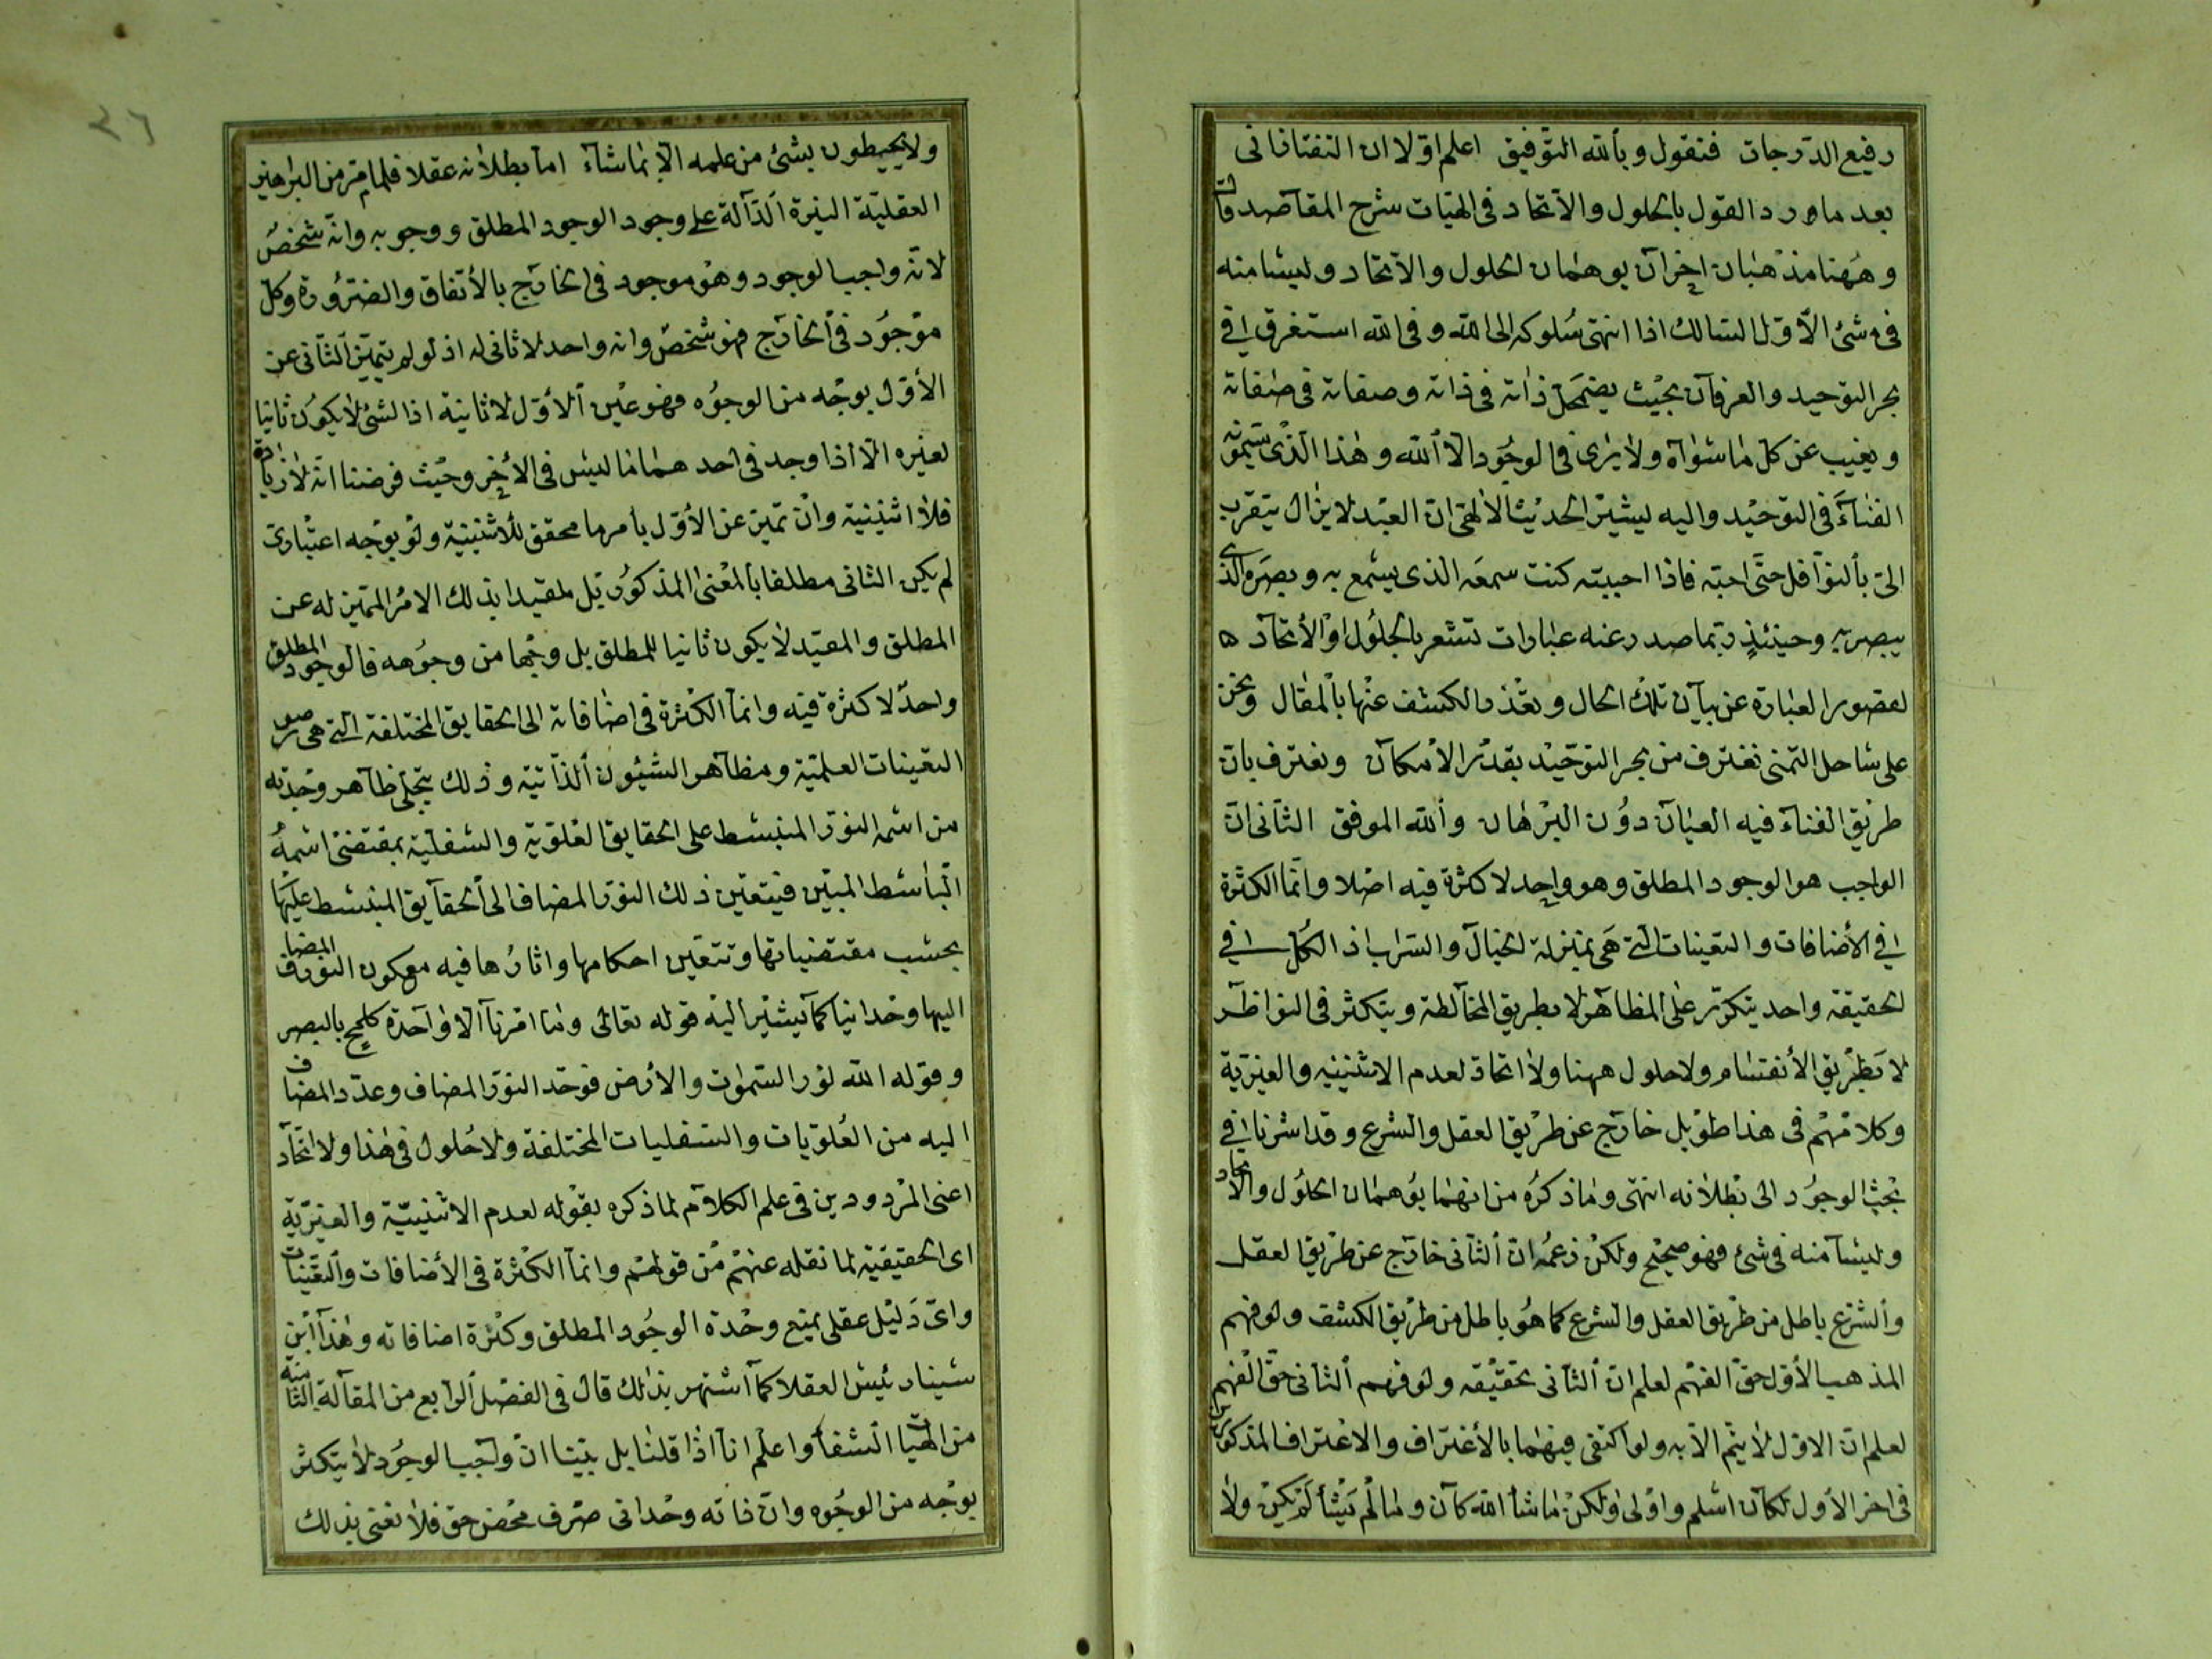 رفيع الدرجات فنقول وبالله التوفيق اعلم اولا ان التفتازانى
بعد ما اورد القول بالحلول والاتحاد فى الهيات شرح المقاصد قال
وههنا مذهبان اخران يوهمان الحلول والاتحاد وليسا منه
فى شئ الاول السالك اذا انتهى سلوكه الى الله وفى الله استغرق فى
بحر التوحيد والعرفان بحيث يضمحل ذاته فى ذاته وصفاته فى صفاته
ويغيب عن كل ما سواه ولا يرى فى الوجود الا الله وهذا الذى يسمونه
الفناء فى التوحيد واليه يشير الحديث الالهى ان العبد لا يزال يتقرب
الىّ بالنوافل حتى احبه فاذا احببته كنت سمعه الذى يسمع به وبصره الذى
يبصر به وحينئذ ربما صدر عنه عبارات تشعر بالحلول او الاتحاد
لقصور العبارة عن بيان تلك الحال وبعّذر الكشف عنها بالمقال ونحن
على ساحل التمنى نغترف من بحر التوحيد بقدر الامكان ونعترف بان
طريق الفناء فيه العيان دون البرهان والله الموفق الثانى ان
الواجب هو الوجود المطلق وهو واحد لا كثرة فيه اصلا وانما الكثرة
فى الاضافات والتعينات التى هى بمنزلة الخيال والسراب اذ الكل فى
الحقيقة واحد يتكرر على المظاهر لا بطريق المخالطة ويتكثر فى النواظر
لا بطريق الانقسام ولا حلول ههنا ولا اتحاد لعدم الاثنينيه والغيرية
وكلامهم فى هذا طويل خارج عن طريق العقل والشرع وقد اشرنا فى
بحث الوجود الى بطلانه انتهى وما ذكره من انهما يوهمان الحلول والاتحاد
وليسا منه فى شئ فهو صحيح ولكن زعمه ان الثانى خارج عن طريق العقل
والشرع باطل من طريق العقل والشرع كما هو باطل من طريق الكشف ولو فهم
المذهب الاول حق الفهم لعلم ان الثانى تحقيقه ولو فهم الثانى حق الفهم
لعلم ان الاول لا يتم الا به ولو اكتفى فيهما بالاغتراف والاعتراف المذكورين
فى اخر الاول لكان اسلم واولى ولكن ما شا الله كان وما لم يشأ لم يكن ولا
٢٦
ولا يحيطون بشئ من علمه الا بما شاء اما بطلانه عقلا فلما مر من البراهين
العقلية النيرة الدالة على وجود الوجود المطلق ووجوبه وانه شخص
لانه واجب الوجود وهو موجود فى الخارج بالاتفاق والضرورة وكل
موجود فى الخارج فهو شخص وانه واحد لا ثانى له اذ لو لم يتميز الثانى عن
الاول بوجه من الوجوه فهو عين الاول لا ثانية اذ الشئ لا يكون ثانيا
لغيره الا اذا وجد فى احدهما ما ليس فى الاخر وحيث فرضنا انه لا زيادة
فلا اثنينية وان تميز عن الاول بامر ما محقق للاثنينية ولو بوجه اعتبارى
لم يكن الثانى مطلقا بالمعنى المذكور بل مقيدا بذلك الامر المميز له عن
المطلق والمقيد لا يكون ثانيا للمطلق بل وجها من وجوهه فالوجود المطلق
واحد لا كثرة فيه وانما الكثرة فى اضافاته الى الحقايق المختلفة التى هى صور
التعينات العلمية ومظاهر الشئون الذاتية وذلك بتجلى ظاهر وحدته
من اسمه النور المنبسط على الحقايق العلوية والسفلية بمقتضى اسمه
الباسط المبين فيتعين ذلك النور المضاف الى الحقايق المنبسط عليها
بحسب مقتضياتها وتتعين احكامها واثارها فيه مع كون النور المضاف
اليها وحدانيا كما يشير اليه قوله تعالى وما امرنا الا واحدة كلمح بالبصر
وقوله الله نور السموات والارض فوحد النور المضاف وعدّد المضاف
اليه من العلويات والسفليات المختلفة ولا حلول فى هذا ولا اتحاد
اعنى المردودين فى علم الكلام لما ذكره بقوله لعدم الاثنينية والغيرية
اى الحقيقية لما نقله عنهم من قولهم وانما الكثرة فى الاضافات والتعينات
واى دليل عقلى يمنع وحدة الوجود المطلق وكثرة اضافاته وهذا ابن
سينا رئيس العقلا كما اشتهر بذلك قال فى الفصل الرابع من المقالة الثامنة
من الهيات الشفا واعلم انا اذا قلنا بل بينا ان واجب الوجود لا يتكثر
بوجه من الوجوه وان ذاته وحدانى صرف محض حق فلا نعنى بذلك